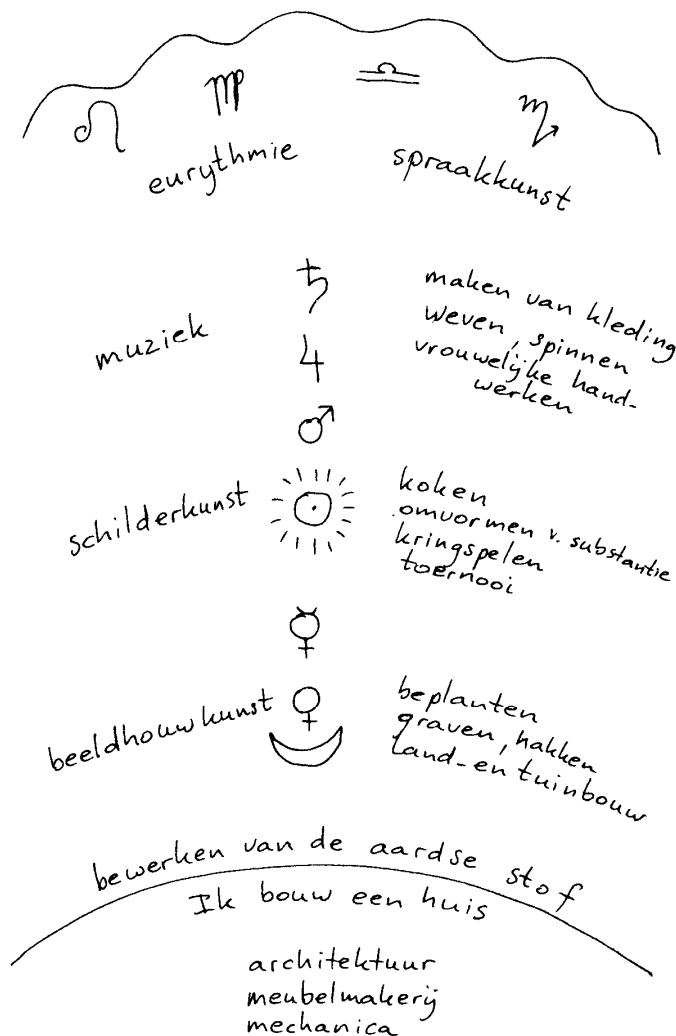 ♌ ♍ ♎ ♏
eurythmie
spraakkunst
♄
♃
♂
muziek
maken van kleding
weven, spinnen
vrouwelijke hand-
werken
schilderkunst
☉
koken
omvormen v. substantie
kringspelen
toernooi
☿
beeldhouwkunst
♀
beplanten
graven, hakken
land-en tuinbouw
bewerken van de aardse stof
Ik bouw een huis
architektuur
meubelmakerij
mechanica